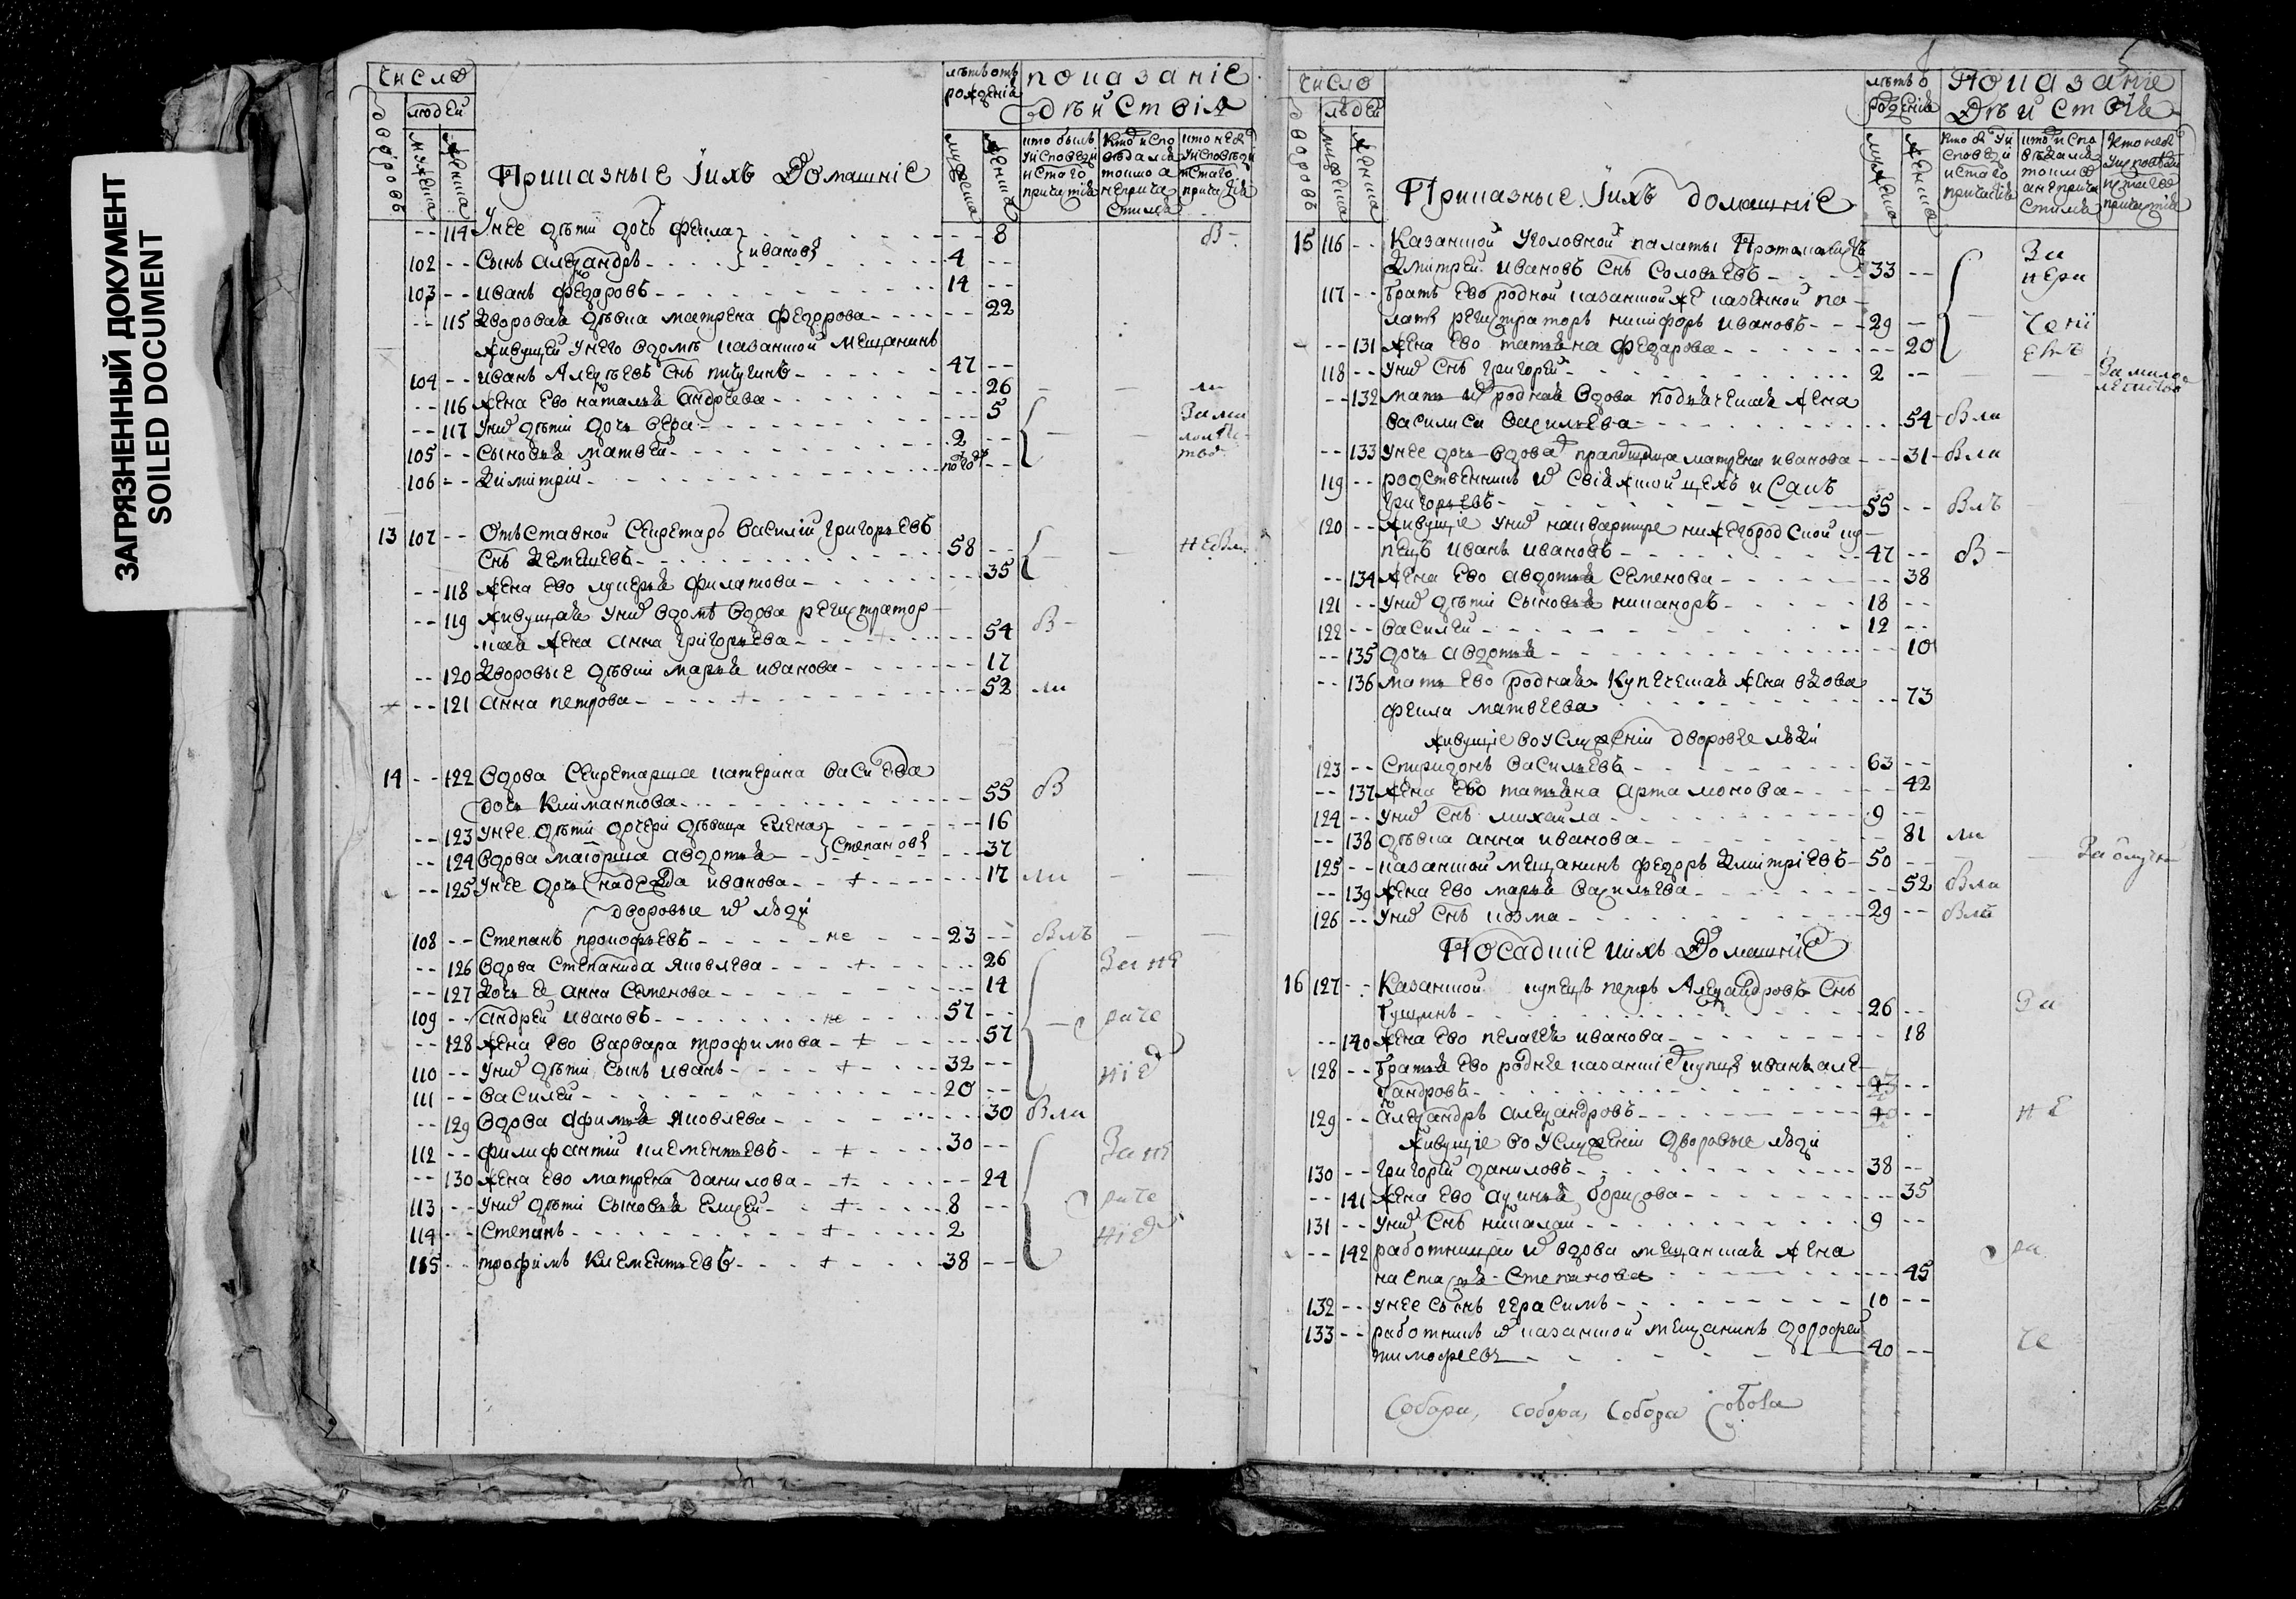 ЗАГРЯЗНЕННЫЙ ДОКУМЕНТ
SOILED DOCUMENT
число
дворовъ
людей
мужеска
женска
Приказные їихъ Домашніе
лѣтъ отъ рожденія
мужеска
женска
показаніе
дѣйствія
кто былъ у исповеди и с̃таго причастія
кто исповѣдался токмо а не причастился
кто не былъ у исповѣди и с̃таго причастія
-- 114 Унее дѣти дочь фекла - - - 8 в-
102 -- Сынъ Александръ - - } ивановы 4 --
103 -- иванъ федоровъ - - - 14 --
-- 115 Дворовая дѣвка матрена федорова - - - 22
живущей унего вдомѣ казанской мещанинъ
104 -- иванъ Алексѣевъ Снъ пичугинъ - - - 47 --
-- 116 жена ево наталья андреева - - - 26
-- 117 Унихъ дѣти дочь вера - - - 5
За мало
105 -- Сыновья матвей - - - 2 --
106 -- Димитрий - - - полгода --
13 107 -- Отставной Секретарь василий григорьевъ
Снъ Кемешевъ - - - 58 -- не был
-- 118 жена ево лукерья филатова - - - 35
-- 119 живущая унихъ вдомѣ вдова регистратор
ская жена анна григорьева - - - 54 в-
-- 120 Дворовые дѣвки марья иванова - - - 17
-- 121 анна петрова - - - 52 ла
14 -- 122 вдова Секретарша катерина васильева
дочь Климантова - - - 55 в
-- 123 унее дѣти дочери дѣвица Елена - - - 16
-- 124 вдова маіорша авдотья - - } Степановы 37
-- 125 унее дочь надежда иванова - + - 17 ла
дворовые их люди
108 -- Степанъ прокофьевъ - - не - - 23 -- былъ
-- 126 вдова Степанида яковлева - - + - - 26 За не
-- 127 Дочь ее анна Семенова - - - 14
109 -- андрей ивановъ - - не - - 57 -- раче
-- 128 жена ево варвара трофимова - + - 57
110 -- унихъ дѣти Сынъ иванъ - - + - 32 -- ніе
111 -- василей - - - 20 --
-- 129 вдова афимья яковлева - - - 30 была
112 -- филифантій клементьевъ - - + - 30 -- За не
-- 130 жена ево матрена данилова - + - 24
113 -- унихъ дѣти Сыновья Елисей - + - 8 -- раче
114 -- Степанъ - - + - 2 ніе
115 -- трофимъ Клементьевъ - - + - 38 --
число
дворовъ
людей
мужеска
женска
Приказные їихъ домашніе
лѣтъ о рожденія
мужеска
женска
Показаніе
Дѣйствія
кто былъ у исповеди и с̃таго причастія
кто исповѣдался токмо а не причастился
кто не былъ у исповѣди и с̃таго причастія
15 116 -- Казанской Уголовной палаты Протоколистъ
Дмитрей ивановъ Снъ Соловьевъ - - 33 -- За
нера
117 -- братъ ево родной казанской же казенной па-
латы регистраторъ никифоръ ивановъ - - - 29 -- чені
-- 131 жена ево татьяна федорова - - - 20 емъ
118 -- унихъ Снъ григорей - - - 2 -- За мало
летство
-- 132 мать их родная вдова подьяческая жена
василиса васильева - - - 54 была
-- 133 унее дочь вдова матрена иванова - - 31 была
119 -- родственникъ их свіяжской цехъ исакъ
григорьевъ - - - 55 -- былъ
120 -- живущіе унихъ наквартире нижегородской ку-
пецъ иванъ ивановъ - - - 47 -- в-
-- 134 жена ево авдотья семенова - - - 38
121 -- унихъ дѣти сыновья никаноръ - - - 18 --
122 -- василей - - - 12 --
-- 135 дочь авдотья - - - 10
-- 136 мать ево родная купеческая жена вдова
фекла матвеева - - - 73
живущіе воуслуженіи дворовые люди
123 -- Спиридонъ васильевъ - - - 63 --
-- 137 жена ево татьяна артамонова - - - 42
124 -- унихъ Снъ михайла - - - 9 --
-- 138 дѣвка анна иванова - - - 81 ла
125 -- казанской мещанинъ федоръ дмитріевъ - 50 -- За отлуч
-- 139 жена ево марья васильева - - - 52 была
126 -- унихъ Снъ козма - - - 29 -- былъ
Посадскіе иихъ Домашніе
16 127 -- Казанской купецъ петръ Александровъ Снъ
- - - 26 -- За
-- 140 жена ево пелагея иванова - - - 18
128 -- братья ево родные казанскіе купцы иванъ але
ксандровъ - - - --
129 -- александръ александровъ - - - -- не
живущіе воуслуженіи дворовые люди
130 -- григорій даниловъ - - - 38 --
-- 141 жена ево аксинья борисова - - - 35
131 -- унихъ Снъ николай - - - 9 --
-- 142 работница их вдова мещанская жена
настасья Степанова - - - 45 ра
132 -- унее сынъ герасимъ - - - 10 --
133 -- работникъ их казанской мещанинъ дорофей
тимофеевъ - - - 40 -- че
Собора, собора, Собора Собоlа